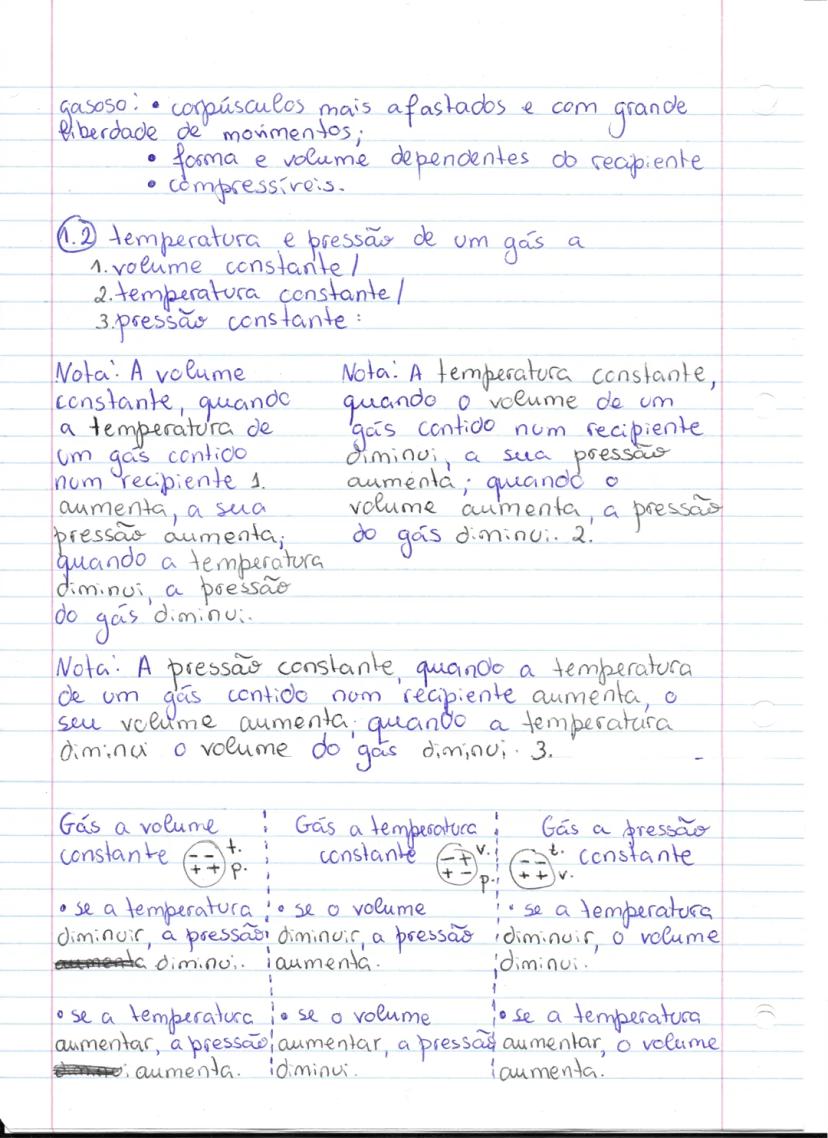 gasoso: • corpúsculos mais afastados e com grande
liberdade de movimentos;
• forma e volume dependentes do recipiente
• compressíveis.
1.2 temperatura e pressão de um gás a
1. volume constante /
2. temperatura constante /
3. pressão constante :
Nota: A volume
constante, quando
a temperatura de
um gás contido
num recipiente 1.
aumenta, a sua
pressão aumenta;
quando a temperatura
diminui, a pressão
do gás diminui.
Nota: A temperatura constante,
quando o volume de um
gás contido num recipiente
diminui, a sua pressão
aumenta; quando o
volume aumenta, a pressão
do gás diminui. 2.
Nota: A pressão constante, quando a temperatura
de um gás contido num recipiente aumenta, o
seu volume aumenta; quando a temperatura
diminui o volume do gás diminui. 3.
Gás a volume
constante -- t.
++ p.
• se a temperatura
diminuir, a pressão
aumenta diminui.
• se a temperatura
aumentar, a pressão
diminui aumenta.
Gás a temperatura
constante -+ v.
+- p.
• se o volume
diminuir, a pressão
aumenta.
• se o volume
aumentar, a pressão
diminui.
Gás a pressão
-- t. constante
++ v.
• se a temperatura
diminuir, o volume
diminui.
• se a temperatura
aumentar, o volume
aumenta.